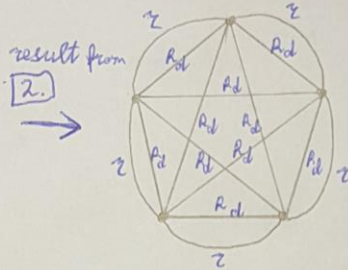 r r
result from
R_d R_d
2.
R_d
R_d R_d
r R_d R_d R_d R_d r
R_d
r